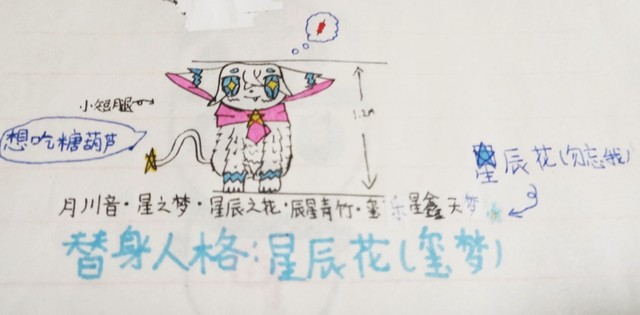 小短腿
1.2m
想吃糖葫芦
星辰花(勿忘我)
月川音·星之梦·星辰之花·辰星青竹·玺乐星鑫天梦
替身人格:星辰花(玺梦)